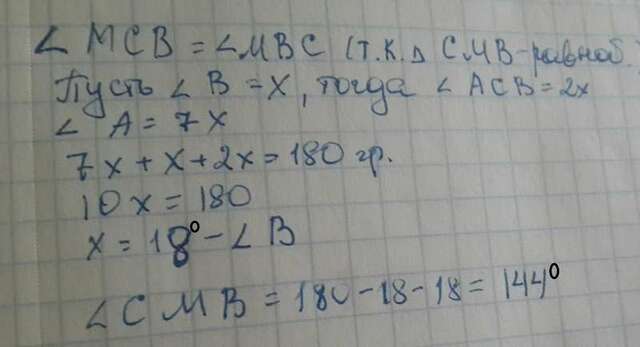 ∠ MCB = ∠MBC (т.к. Δ CMB-равноб.
Пусть ∠ B = x, тогда ∠ ACB = 2x
∠ A = 7x
7x + x + 2x = 180 гр.
10x = 180
x = 18° - ∠ B
∠ CMB = 180 - 18 - 18 = 144°